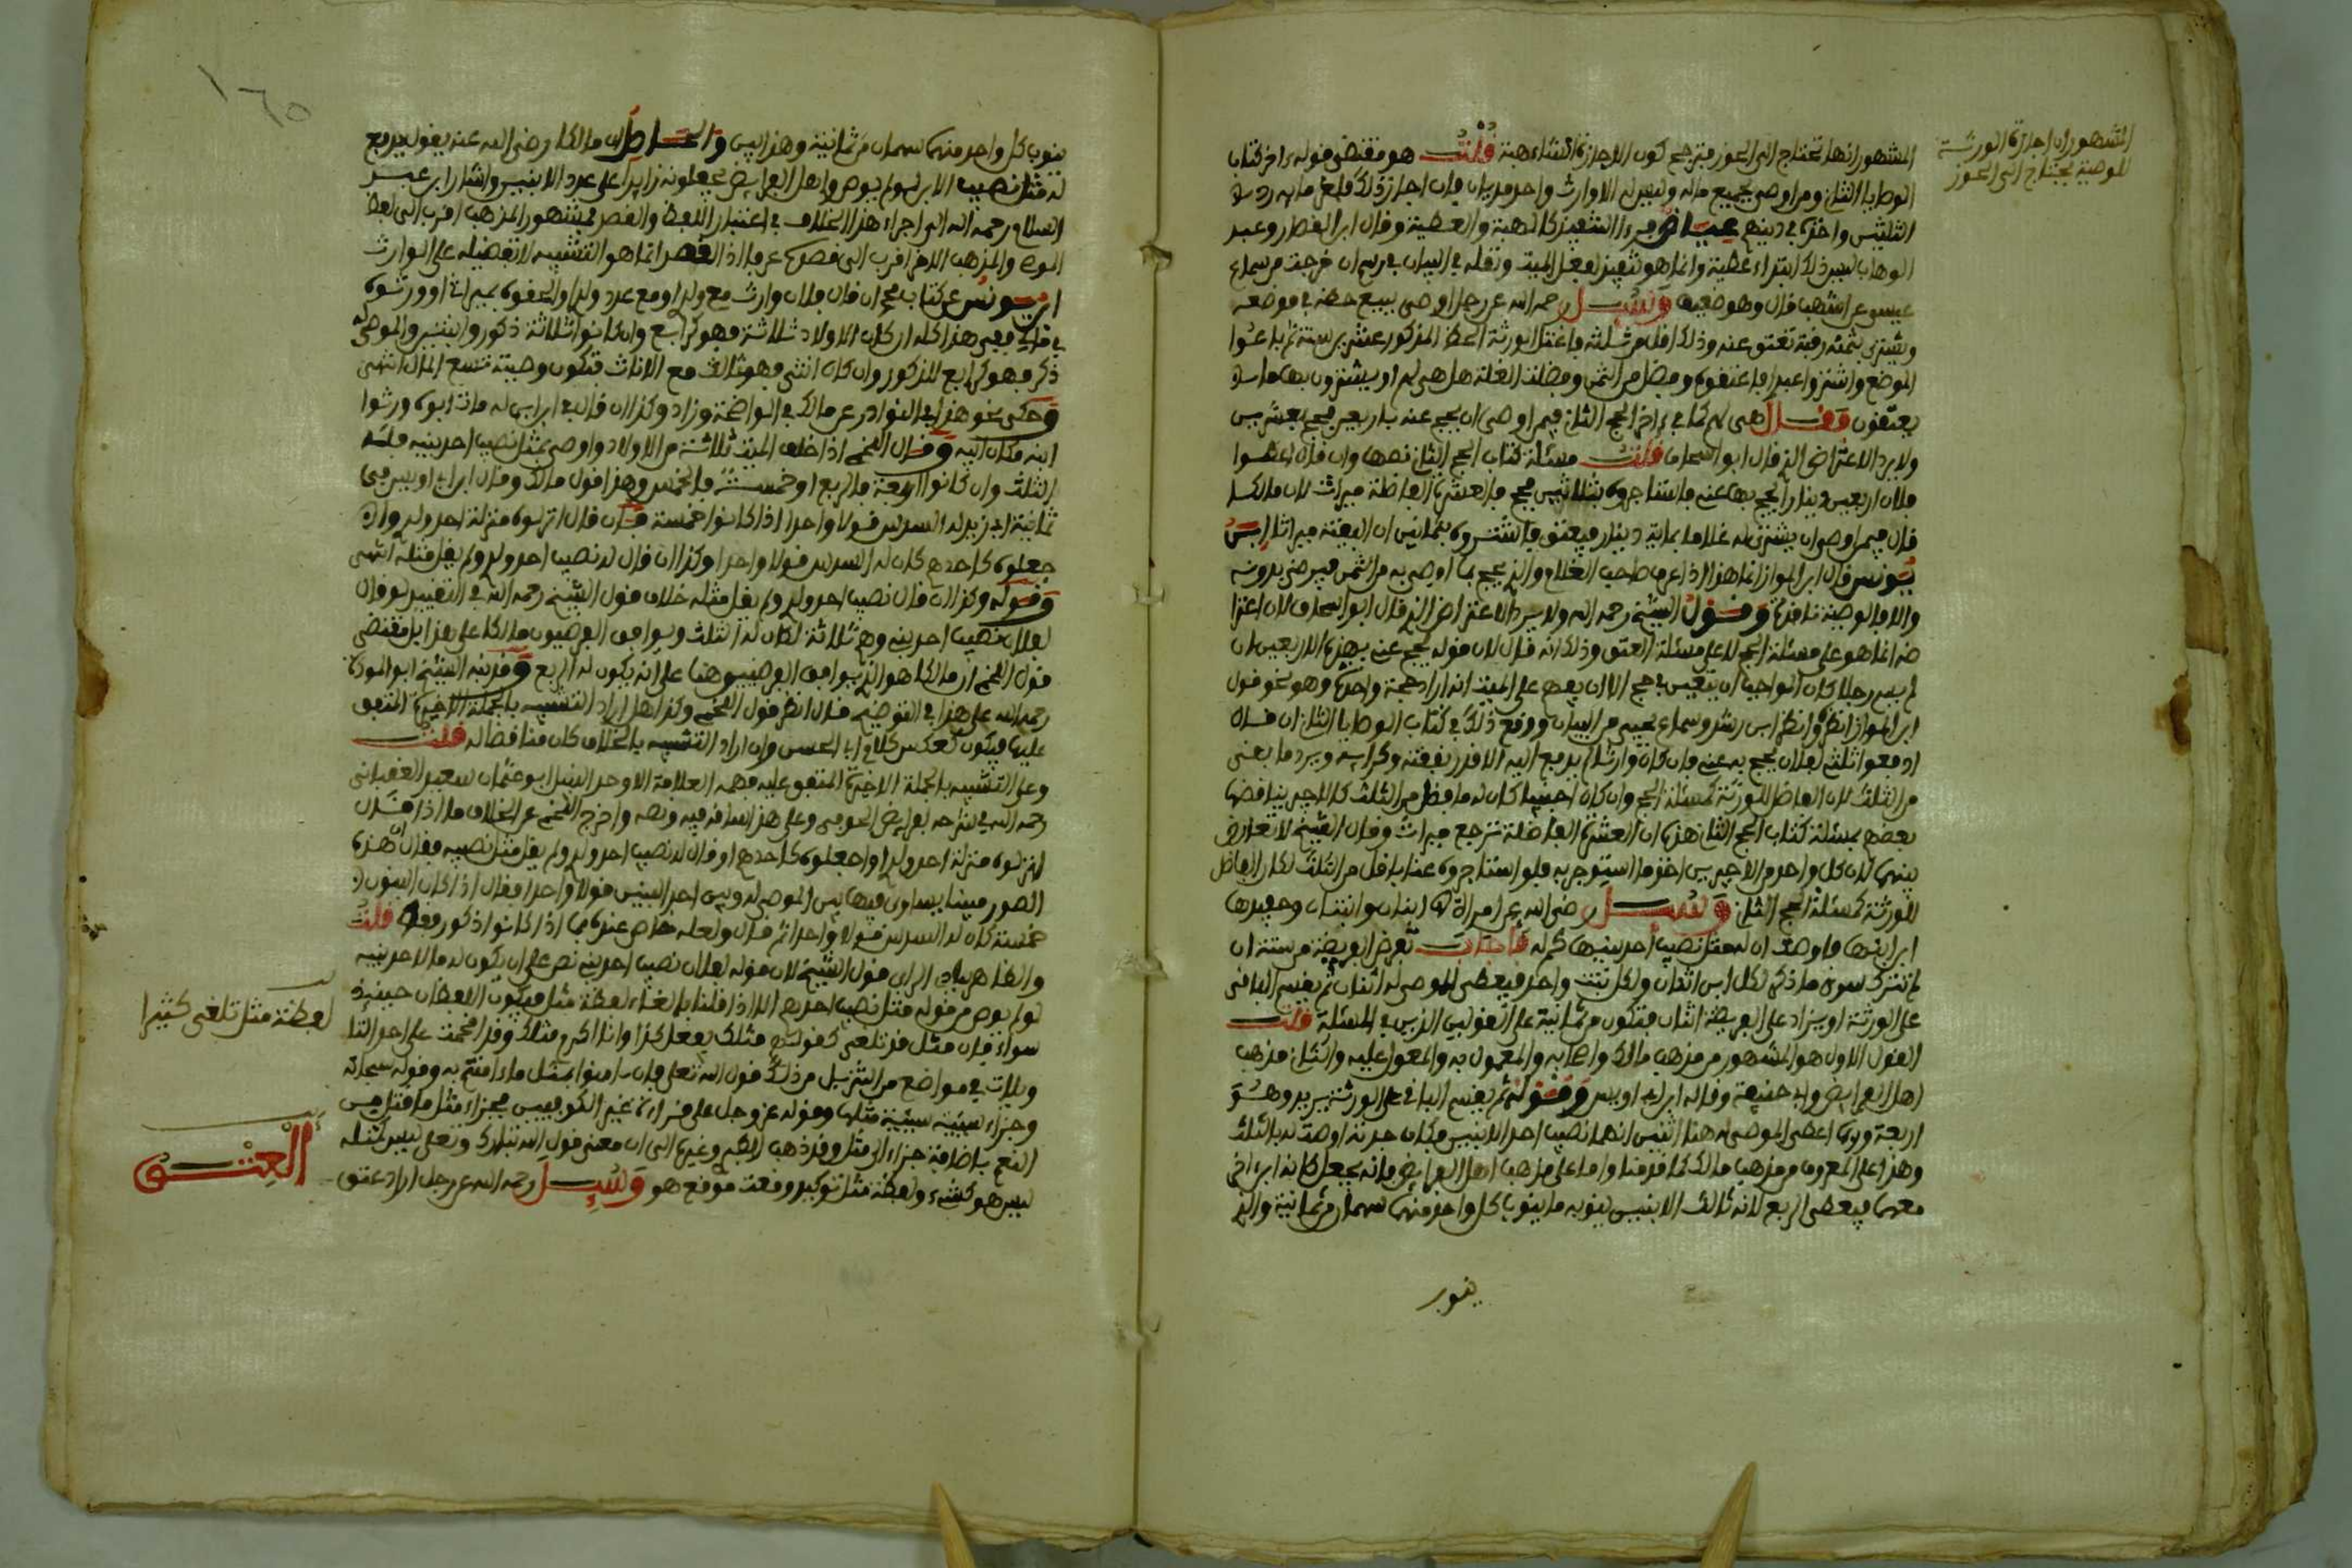 المشهور أن إجازة الورثة
للوصية تحتاج إلى الحوز
المشهور أنها تحتاج إلى الحوز فترجح كون الإجازة ابتداء هبة قلت هو مقتضى قوله ءاخر كتاب
الوصايا الثاني ومن أوصى بجميع ماله وليس له إلا وارث واحد مديان فإن أجاز ذلك فلغرمائه رد
الثلثين وأخذه في دينهم عياض فيرى التنفيذ كالهبة والعطية وقال ابن القصار وعبد
الوهاب ليس ذلك ابتداء عطية وإنما هو تنفيذ لفعل الميت ونقله في البيان في رسم إن خرجت من سماع
عيسى عن أشهب قال وهو ضعيف وسئل رحمه الله عن رجل أوصى ببيع حظه في موضعه
ويشترى بثمنه رقبة تعتق عنه وذلك أقل من ثلثه فاغتل الورثة الحظ المذكور عشرين سنة ثم باعوا
الموضع واشتروا عبدا فأعتقوه وفضل من الثمن وفضلت الغلة هل هي لهم أو يشترون بها ما
يعتقون فقال هي لهم كما في ءاخر الحج الثاني فيمن أوصى أن يحج عنه بأربعين فحج بعشرين
ولا يرد الاعتراض الذي قال أبو إسحاق قلت مسئلة كتاب الحج الثاني نصها وإن قال أعطوا
فلان أربعين دينارا يحج بها عني فاستأجروه بثلاثين فحج فالعشرة الفاضلة ميراث لأن مالكا
قال فيمن أوصى أن يشترى له غلام بمائة دينار فيعتق فاشتروه بثمانين أن البقية ميراث ابن
يونس قال ابن المواز إنما هذا إذا عرف صاحب الغلام والذي يحج بما أوصى به من الثمن فيرضى بدونه
وإلا فالوصية نافذة وقول الشيخ رحمه الله ولا يرد الاعتراض الذي قال أبو إسحاق لأن اعترا
ضه إنما هو على مسئلة الحج لا على مسئلة العتق وذلك أنه قال لأن قوله يحج عني بهذه الأربعين إن
لم يسم رجلا كان الواجب أن يتعين في حج إلا أن يفهم على الميت أنه أراد حجة واحدة وهو نحو قول
ابن المواز انظره وانظر ابن رشد وسماع يحيى من البيان ووقع ذلك في كتاب الوصايا الثاني إن قال
ادفعوا ثلثي لفلان يحج به عني فإن كان وارثا لم يدفع إليه إلا قدر نفقته وكرائه ويرد ما بقي
من الثلث لأن الفاضل للورثة كمسئلة الحج وإن كان أجنبيا كان له ما فضل من الثلث كالأجير يناقضها
بعضهم بمسئلة كتاب الحج الثاني هذه أن العشرة الفاضلة ترجع ميراثا وقال الشيخ لا تعارض
بينهما لأن كل واحد من الأجيرين أخذ ما استوجر به فلو استأجروه عنا بأقل من الثلث لكان الفاضل
للورثة كمسئلة الحج الثاني وسئل رضي الله عن امرأة لها ابنان وابنتان وحفيدها
ابن ابنها فأوصت أن له مثل نصيب أحد بنيها كمل له فأجاب تعرض الفريضة من ستة إن
لم تترك سوى ما ذكر لكل ابن اثنان ولكل بنت واحد فيعطى الموصى له اثنان ثم يقسم الباقي
على الورثة أو يزاد على الفريضة اثنان فتكون من ثمانية على القولين الذين في المسئلة قلت
القول الأول هو المشهور من مذهب مالك وأصحابه والمعمول به والمعول عليه والثاني مذهب
أهل الفرائض وأبي حنيفة وقاله ابن أبي أويس وقوله ثم يقسم الباقي على الورثة يريد وهو
أربعة وإنما أعطي الموصى له هنا اثنين لأنهما نصيب أحد الابنين فكان جدته أوصت له بالثلث
وهذا على المعروف من مذهب مالك كما قدمنا وأما على مذهب أهل الفرائض فإنه يجعل كأنه ابن أخي
معهما فيعطى الربع لأنه ثالث الابنين ينوبه ما ينوب كل واحد منهما سهمان من ثمانية والذي
ينوب
١٦٥
ينوب كل واحد منهما سهمان من ثمانية وهذا ليس والحاصل أن مالكا رضي الله عنه يقول يدفع
له مثل نصيب الابن لو لم يوص وأهل الفرائض يجعلونه زائدا على عدد الابنين وأشار ابن عبد
السلام رحمه الله إلى إجراء هذا الخلاف في اعتبار اللفظ والقصد فمشهور المذهب أقرب إلى لفظ
الموصي والمذهب الآخر أقرب إلى قصده عرفا إذ القصد إنما هو التشبيه لا تفضيله على الوارث
ابن يونس عن كتاب محمد إن قال فلان وارث مع ولدي أو مع عدد ولدي أو ألحقوه بميراثي أو ورثوه
في مالي فمعنى هذا كله إن كان الأولاد ثلاثة فهو كرابع وإن كانوا ثلاثة ذكور وابنتين والموصى له
ذكر فهو كرابع للذكور وإن كانت أنثى فهو ثالث مع الإناث فتكون وصيته تسع المال انتهى
وحكى نحو هذا في النوادر عن مالك في الواضحة وزاد وكذا إن قال في ابن ابن له مات أبوه ورثوا
ابنه مكان أبيه وقال اللخمي إذا خلف الميت ثلاثة من الأولاد وأوصى بمثل نصيب أحد بنيه فله
الثلث وإن كانوا أربعة فالربع أو خمسة فالخمس وهذا قول مالك وقال ابن أبي أويس في
ثمانية أبي زيد له السدس قولا واحدا إذا كانوا خمسة قال وإن قال أنزلوه منزلة أحد ولدي وإن
جعلوه كأحدهم كان له السدس قولا واحدا وكذا إن قال له نصيب أحد ولدي ولم يقل مثله انتهى
وقوله وكذا إن قال نصيب أحد ولدي ولم يقل مثله خلاف قول الشيخ رحمه الله في التقييد لو قال
لفلان نصيب أحد بنيه وهم ثلاثة لكان له الثلث ويوافق الفرضيون مالكا على هذا بل مقتضى
قول اللخمي أن مالكا هو الذي يوافق الفرضيين هنا على أنه يكون له الربع وقد نبه الشيخ أبو المودة
رحمه الله على هذا في التوضيح فقال انظر قول اللخمي وكذا هل أراد التشبيه بالجملة الأخيرة المتفق
عليها فيكون كعكس كلام أبي الحسن وإن أراد التشبيه بالخلاف كان مناقضا له قلت
وعلى التشبيه بالجملة الأخيرة المتفق عليه فهمه العلامة الأوحد النبيل أبو عثمان سعيد العقباني
رحمه الله في شرحه لفرائض الحوفي وعلى هذا ساقه فيه ونصه وأخرج اللخمي عن الخلاف ما إذا قال
أنزلوه منزلة أحد ولدي أو اجعلوه كأحدهم أو قال له نصيب أحد ولدي ولم يقل مثل نصيبه فقال إن هذه
الصور مبنا يساوى فيها بين الموصى له وبين أحد البنين قولا واحدا فقال إذا كان البنون
خمسة كان له السدس قولا واحدا ثم قال ولعله خاص عنده بما إذا كانوا ذكور فقط قلت
والظاهر بادي الرأي قول الشيخ لأن قوله لفلان نصيب أحد بنيه نص على أن يكون له ما لأحد بنيه
لو لم يوص من قوله مثل نصيب أحدهم إلا إذا قلنا بإلغاء لفظة مثل فيكون اللفظان حينئذ
سواء فإن مثل قد تلغى كقولهم مثلك يفعل كذا وأنا أكرم مثلك وقد أقحمت على أحد التأ
ويلات في مواضع من التنزيل من ذلك قول الله تعالى فإن ءامنوا بمثل ما ءامنتم به وقوله سبحانه
وجزاء سيئة سيئة مثلها وقوله عز وجل على قراءة غير الكوفيين فجزاء مثل ما قتل من
النعم بإضافة جزاء إلى مثل وقد ذهب الأكثر وغيرها إلى أن معنى قول الله تبارك وتعالى ليس كمثله
ليس هو كشيء ولفظة مثل توكيد وقعت موقع هو وسئل رحمه الله عن رجل أراد عتق
لفظة مثل تلغى كثيرا
العتق